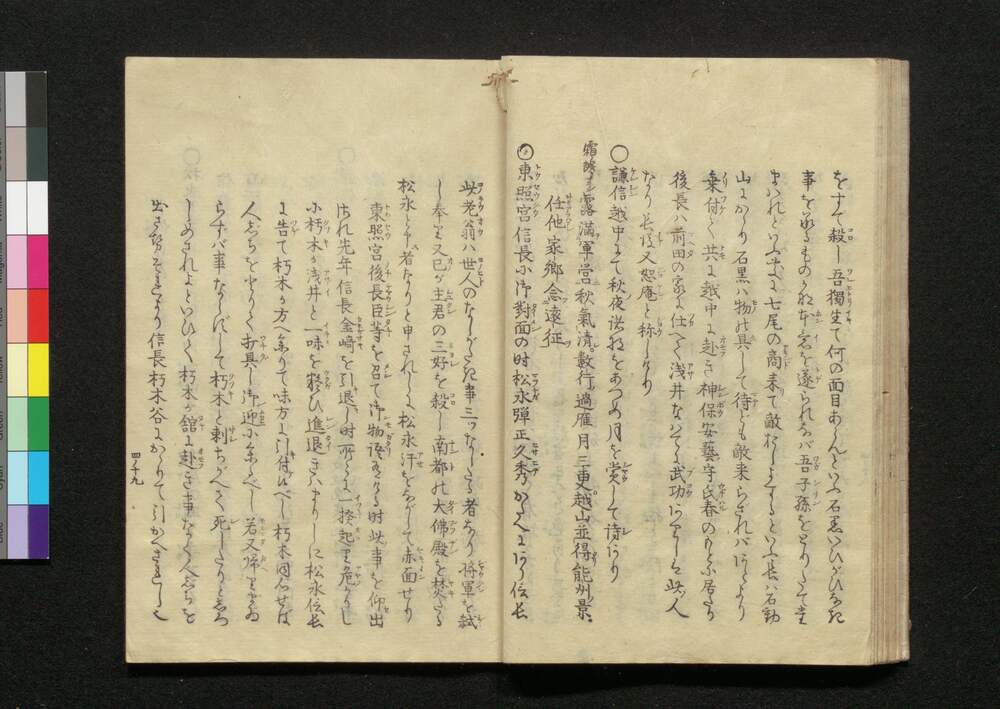 をすて殺し吾獨生て何の面目あらんといふ石黒いひがひなき
事を承るものかな本意を遂られなば吾子孫をとりたて
まはれといふまに七尾の商来て敵打しまするといふ長は石動
山にかゝり石黒は物の具して待ども敵来らざれば
乗付て共に越中に赴き神保安藝守氏春のもとに居たり
後長は前田の家に仕へて浅井なはてにて武功ありし此人
なり長後又恕庵と称しけり
○謙信越中にて秋夜諸将をあつめ月を賞して詩あり
霜滿軍営秋氣清數行過雁月三更越山並得能州景
任他家郷念遠征
○東照宮信長に御對面の時松永弾正久秀かたへにあり信長
此老翁は世人のなしがたき事三ツなしたる者なり将軍を弑
し奉り又己が主君の三好を殺し南都の大佛殿を焚たる
松永と申者なりと申されしに松永汗をながして赤面せり
東照宮後長臣等を召て御物語ある時此事を仰出
され先年信長金崎を引退し時所々に一揆起り危かりし
に朽木が浅井と一味を疑ひ進退きはまりしに松永信長
に告て朽木が方へ参りて味方に引付べし朽木同心せば
人じちをとりて打具し御迎に参べし若又帰り来
らずば事ならずして朽木と刺ちがへて死したりとしろ
しめされよといひて朽木が舘に赴き事なく人じちを
出させそれより信長朽木谷にかゝりて引かへされし
四ノ十九